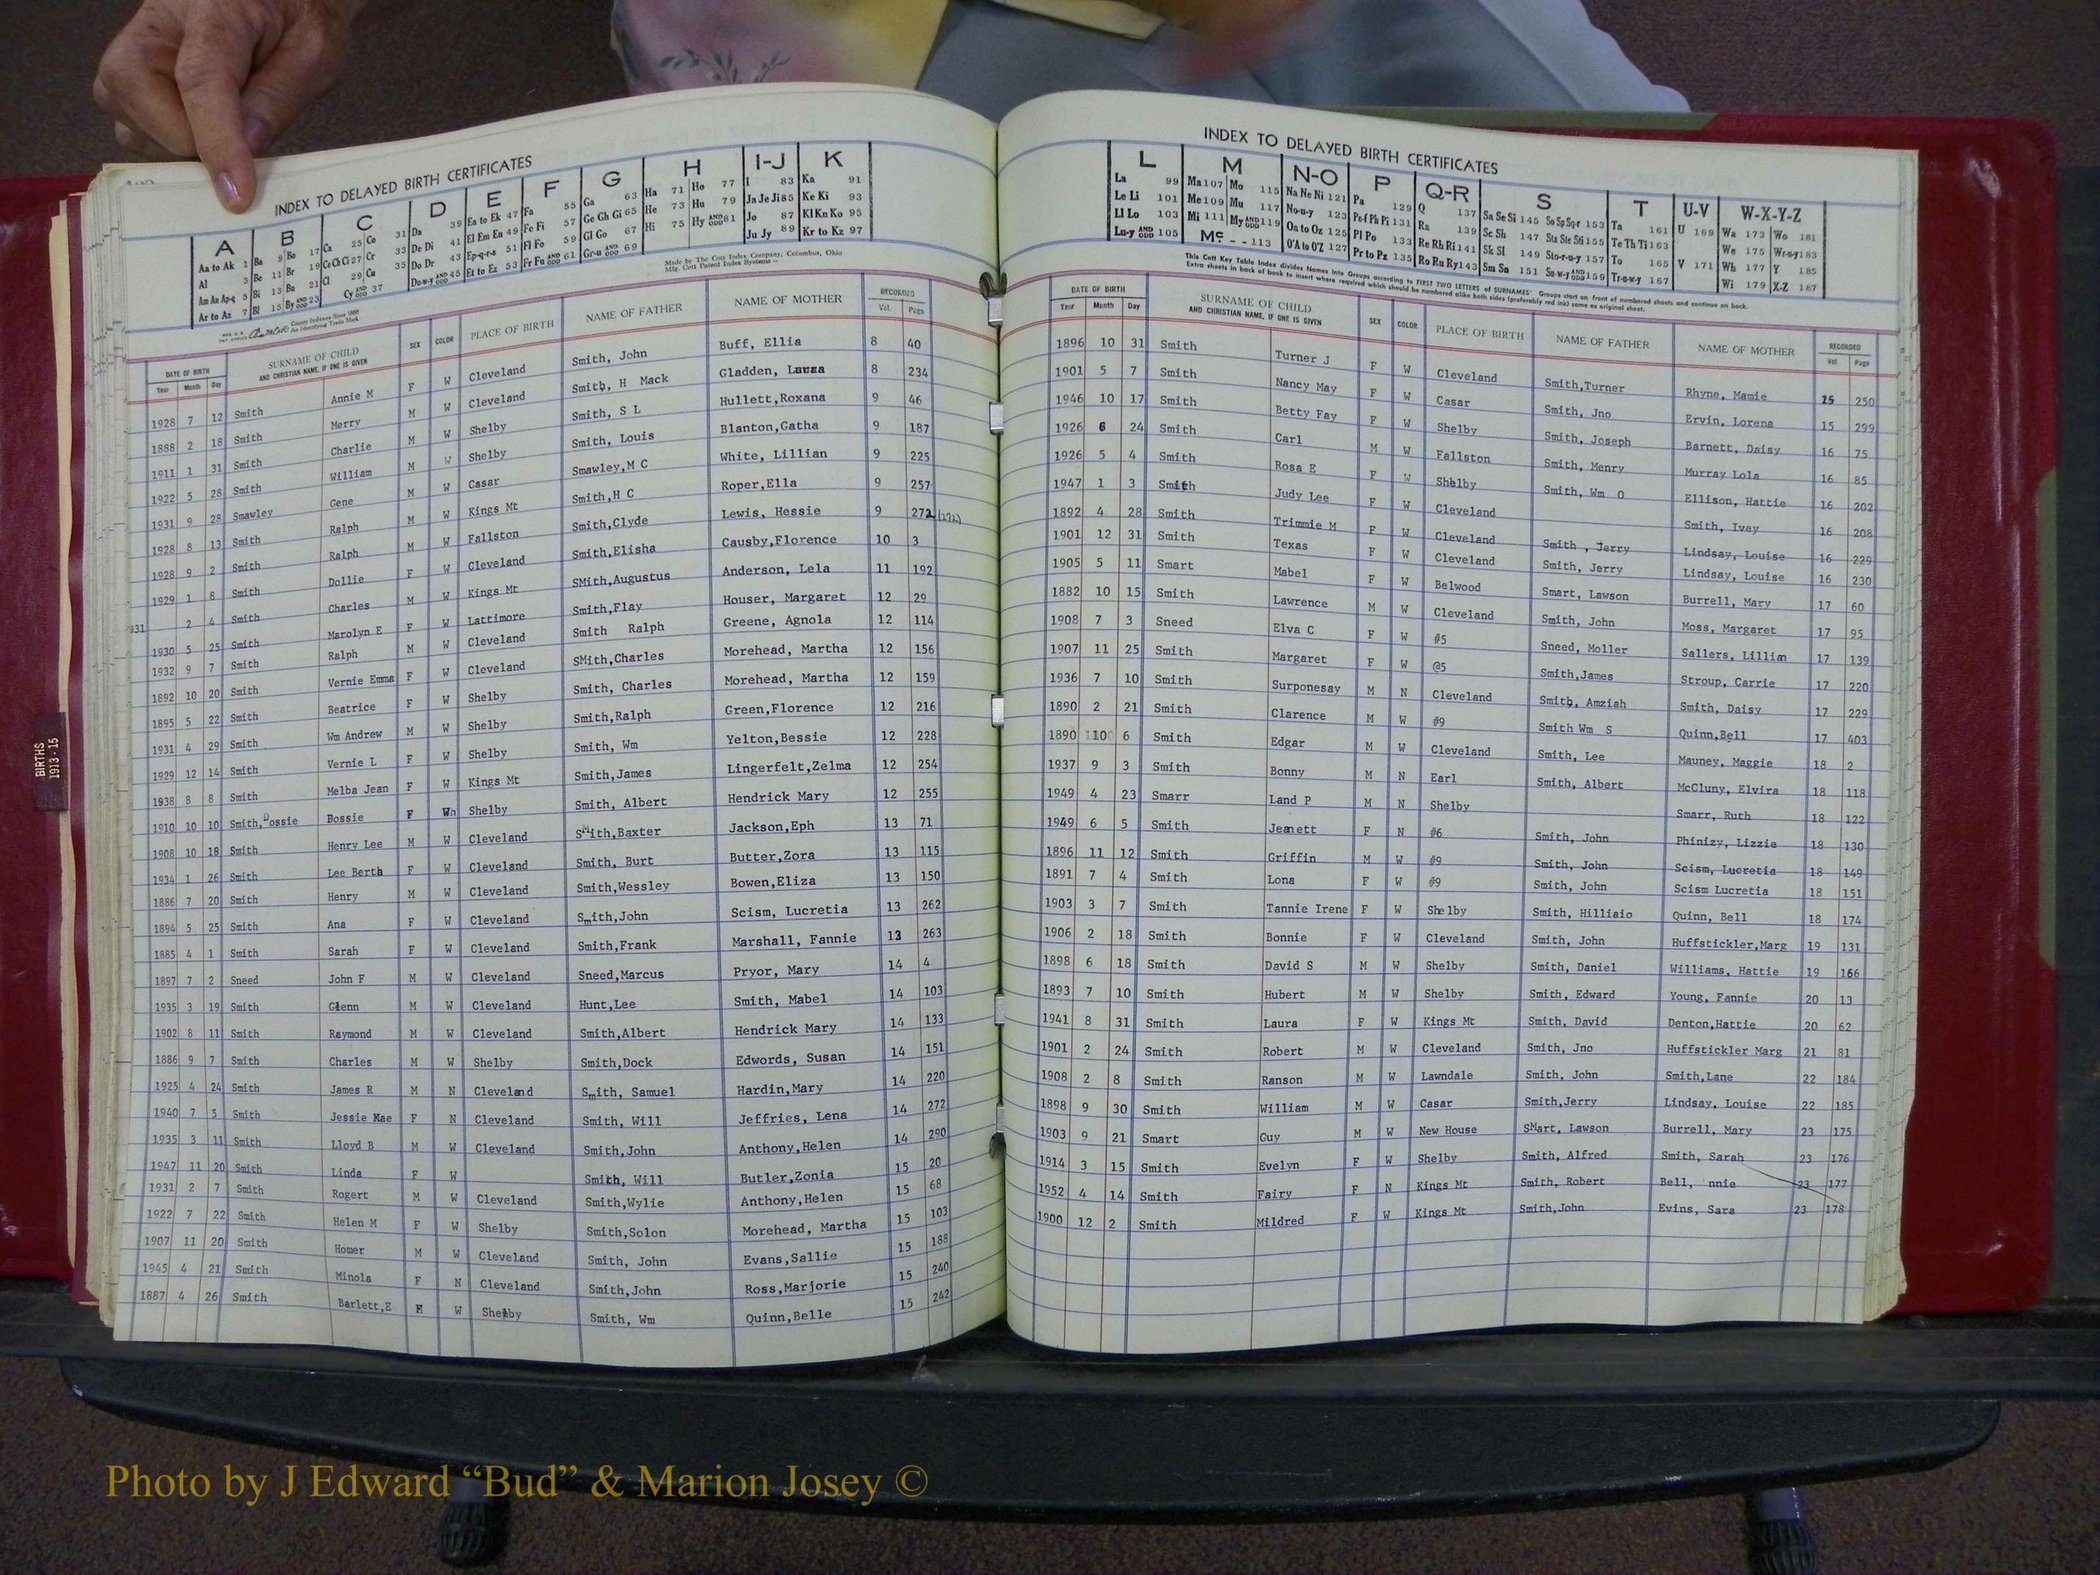 INDEX TO DELAYED BIRTH CERTIFICATES
A B C D E F G H I-J K
Aa to Ak 1 Ba 9 Bo 17 Ca 25 Co 31 Da 39 Ea to Ek 47 Fa 55 Ga 63 Ha 71 Ho 77 I 83 Ka 91
Al 3 Be 11 Br 19 Ce Ch Ci 27 Cr 33 De Di 41 El Em En 49 Fe Fi 57 Ge Gh Gi 65 He 73 Hu 79 Ja Je Ji 85 Ke Ki 93
Am An Ap-q 5 Bi 13 Bu 21 Cl 29 Cu 35 Do Dr 43 Ep-q-r-s 51 Fl Fo 59 Gl Go 67 Hi 75 Hy AND ODD 81 Jo 87 Kl Kn Ko 95
Ar to Az 7 Bl 15 By AND ODD 23 Cy AND ODD 37 Du-w-y AND ODD 45 Et to Ez 53 Fr Fu AND ODD 61 Gr-u AND ODD 69 Ju Jy 89 Kr to Kz 97
Made by The Cott Index Company, Columbus, Ohio
Mfg. Cott Patent Index Systems
DATE OF BIRTH SURNAME OF CHILD AND CHRISTIAN NAME, IF ONE IS GIVEN SEX COLOR PLACE OF BIRTH NAME OF FATHER NAME OF MOTHER RECORDED
Year Month Day Vol. Page
1928 7 12 Smith Annie M F W Cleveland Smith, John Buff, Ellia 8 40
1888 2 18 Smith Merry M W Cleveland Smith, H Mack Gladden, Laura 8 234
1911 1 31 Smith Charlie M W Shelby Smith, S L Hullett,Roxana 9 46
1922 5 28 Smith William M W Shelby Smith, Louis Blanton,Gatha 9 187
1931 9 28 Smawley Gene M W Casar Smawley,M C White, Lillian 9 225
1928 8 13 Smith Ralph M W Kings Mt Smith,H C Roper,Ella 9 257
1928 9 2 Smith Ralph M W Fallston Smith,Clyde Lewis, Hessie 9 272 (272)
1929 1 8 Smith Dollie F W Cleveland Smith,Elisha Causby,Florence 10 3
931 2 4 Smith Charles M W Kings Mt SMith,Augustus Anderson, Lela 11 192
1930 5 25 Smith Marolyn E F W Lattimore Smith,Flay Houser, Margaret 12 29
1932 9 7 Smith Ralph M W Cleveland Smith Ralph Greene, Agnola 12 114
1892 10 20 Smith Vernie Emma F W Cleveland SMith,Charles Morehead, Martha 12 156
1895 5 22 Smith Beatrice F W Shelby Smith, Charles Morehead, Martha 12 159
1931 4 29 Smith Wm Andrew M W Shelby Smith,Ralph Green,Florence 12 216
1929 12 14 Smith Vernie L F W Shelby Smith, Wm Yelton,Bessie 12 228
1938 8 8 Smith Melba Jean F W Kings Mt Smith,James Lingerfelt,Zelma 12 254
1910 10 10 Smith,Dossie Dossie F Wn Shelby Smith, Albert Hendrick Mary 12 255
1908 10 18 Smith Henry Lee M W Cleveland Smith,Baxter Jackson,Eph 13 71
1934 1 26 Smith Lee Berth F W Cleveland Smith, Burt Butter,Zora 13 115
1886 7 20 Smith Henry M W Cleveland Smith,Wessley Bowen,Eliza 13 150
1894 5 25 Smith Ana F W Cleveland Smith,John Scism, Lucretia 13 262
1885 4 1 Smith Sarah F W Cleveland Smith,Frank Marshall, Fannie 13 263
1897 7 2 Sneed John F M W Cleveland Sneed,Marcus Pryor, Mary 14 4
1935 3 19 Smith Glenn M W Cleveland Hunt,Lee Smith, Mabel 14 103
1902 8 11 Smith Raymond M W Cleveland Smith,Albert Hendrick Mary 14 133
1886 9 7 Smith Charles M W Shelby Smith,Dock Edwords, Susan 14 151
1925 4 24 Smith James R M N Cleveland Smith, Samuel Hardin,Mary 14 220
1940 7 5 Smith Jessie Mae F N Cleveland Smith, Will Jeffries, Lena 14 272
1935 3 11 Smith Lloyd B M W Cleveland Smith,John Anthony,Helen 14 290
1947 11 20 Smith Linda F W Smith, Will Butler,Zonia 15 20
1931 2 7 Smith Rogert M W Cleveland Smith,Wylie Anthony,Helen 15 68
1922 7 22 Smith Helen M F W Shelby Smith,Solon Morehead, Martha 15 103
1907 11 20 Smith Homer M W Cleveland Smith, John Evans,Sallie 15 188
1945 4 21 Smith Minola F N Cleveland Smith,John Ross,Marjorie 15 240
1887 4 26 Smith Barlett,E M W Shelby Smith, Wm Quinn,Belle 15 242
BIRTHS
1913 - 15
INDEX TO DELAYED BIRTH CERTIFICATES
L M N-O P Q-R S T U-V W-X-Y-Z
La 99 Ma 107 Mo 115 Na Ne Ni 121 Pa 129 Q 137 Sa Se Si 145 So Sp Sq-r 153 Ta 161 U 169 Wa 173 Wo 181
Le Li 101 Me 109 Mu 117 No-u-y 123 Pe-f Ph Pi 131 Ra 139 Sc Sh 147 Sta Ste Sti 155 Te Th Ti 163 We 175 Wr-u-y 183
Ll Lo 103 Mi 111 My AND ODD 119 Oa to Oz 125 Pl Po 133 Re Rh Ri 141 Sk Sl 149 Sto-r-u-y 157 To 165 V 171 Wh 177 Y 185
Lu-y AND ODD 105 Mc - - 113 O'A to O'Z 127 Pr to Pz 135 Ro Ru Ry 143 Sm Sn 151 Su-w-y AND ODD 159 Tr-u-w-y 167 Wi 179 X-Z 187
This Cott Key Table Index divides Names into Groups according to FIRST TWO LETTERS of SURNAMES. Groups start on front of numbered sheets and continue on back.
Extra sheets in back of book to insert where required which should be numbered alike both sides (preferably red ink) same as original sheet.
DATE OF BIRTH SURNAME OF CHILD AND CHRISTIAN NAME, IF ONE IS GIVEN SEX COLOR PLACE OF BIRTH NAME OF FATHER NAME OF MOTHER RECORDED
Year Month Day Vol. Page
1896 10 31 Smith Turner J F W Cleveland Smith,Turner Rhyne, Mamie 15 250
1901 5 7 Smith Nancy May F W Casar Smith, Jno Ervin, Lorena 15 299
1946 10 17 Smith Betty Fay F W Shelby Smith, Joseph Barnett, Daisy 16 75
1926 6 24 Smith Carl M W Fallston Smith, Henry Murray Lola 16 85
1926 5 4 Smith Rosa E F W Shelby Smith, Wm O Ellison, Hattie 16 202
1947 1 3 Smith Judy Lee F W Cleveland Smith, Ivey 16 208
1892 4 28 Smith Trimmie M F W Cleveland Smith , Jerry Lindsay, Louise 16 229
1901 12 31 Smith Texas F W Cleveland Smith, Jerry Lindsay, Louise 16 230
1905 5 11 Smart Mabel F W Belwood Smart, Lawson Burrell, Mary 17 60
1882 10 15 Smith Lawrence M W Cleveland Smith, John Moss, Margaret 17 95
1908 7 3 Sneed Elva C F W #5 Sneed, Moller Sallers, Lillian 17 139
1907 11 25 Smith Margaret F W @5 Smith,James Stroup, Carrie 17 220
1936 7 10 Smith Surponesay M N Cleveland Smith, Amziah Smith, Daisy 17 229
1890 2 21 Smith Clarence M W #9 Smith Wm S Quinn,Bell 17 403
1890 10 6 Smith Edgar M W Cleveland Smith, Lee Mauney, Maggie 18 2
1937 9 3 Smith Bonny M N Earl Smith, Albert McCluny, Elvira 18 118
1949 4 23 Smarr Land P M N Shelby Smarr, Ruth 18 122
1949 6 5 Smith Jeanett F N #6 Smith, John Phinizy, Lizzie 18 130
1896 11 12 Smith Griffin M W #9 Smith, John Scism, Lucretia 18 149
1891 7 4 Smith Lona F W #9 Smith, John Scism Lucretia 18 151
1903 3 7 Smith Tannie Irene F W Shelby Smith, Hilliaio Quinn, Bell 18 174
1906 2 18 Smith Bonnie F W Cleveland Smith, John Huffstickler,Marg 19 131
1898 6 18 Smith David S M W Shelby Smith, Daniel Williams, Hattie 19 166
1893 7 10 Smith Hubert M W Shelby Smith, Edward Young, Fannie 20 13
1941 8 31 Smith Laura F W Kings Mt Smith, David Denton,Hattie 20 62
1901 2 24 Smith Robert M W Cleveland Smith, Jno Huffstickler Marg 21 81
1908 2 8 Smith Ranson M W Lawndale Smith, John Smith,Lane 22 184
1898 9 30 Smith William M W Casar Smith,Jerry Lindsay, Louise 22 185
1903 9 21 Smart Guy M W New House SMart, Lawson Burrell, Mary 23 175
1914 3 15 Smith Evelyn F W Shelby Smith, Alfred Smith, Sarah 23 176
1952 4 14 Smith Fairy F N Kings Mt Smith, Robert Bell, nnie 23 177
1900 12 2 Smith Mildred F W Kings Mt Smith,John Evins, Sara 23 178
Photo by J Edward “Bud” & Marion Josey ©